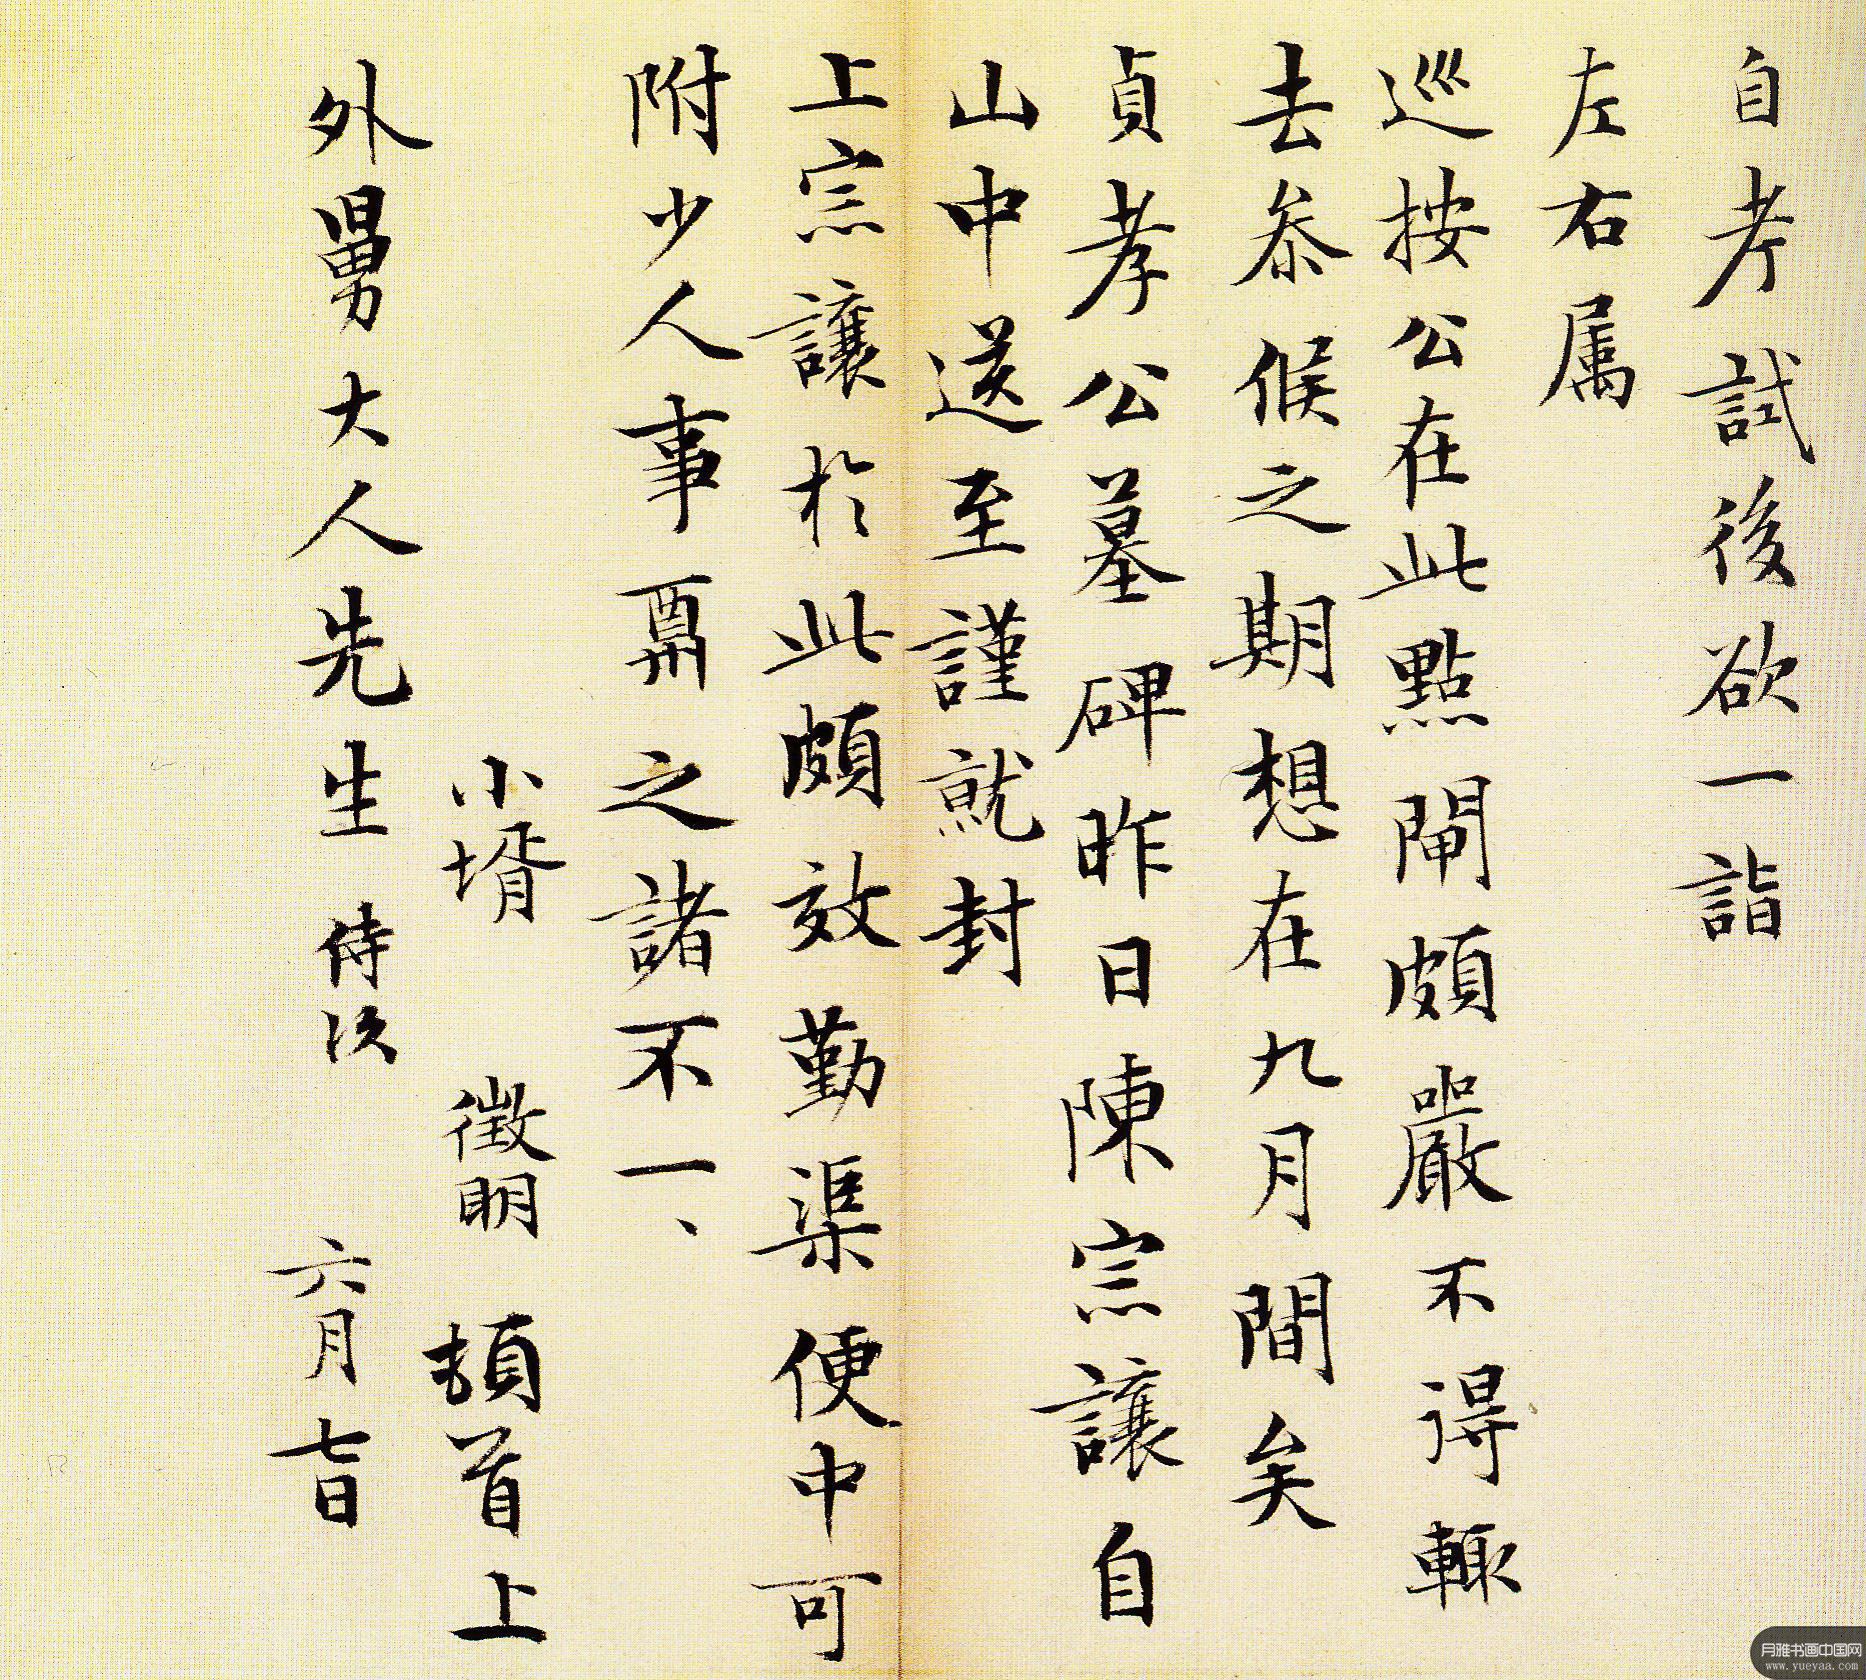 自考試後欲一詣
左右属
巡按公在此點閘頗嚴不得輙
去叅候之期想在九月間矣
貞孝公墓碑昨日陳宗讓自
山中送至謹就封
上宗讓於此頗效勤渠便中可
附少人事酬之諸不一、
小壻 徵明 頓首上
外舅大人先生 侍次 六月七日
月雅书画中国网
www.yueyaa.com